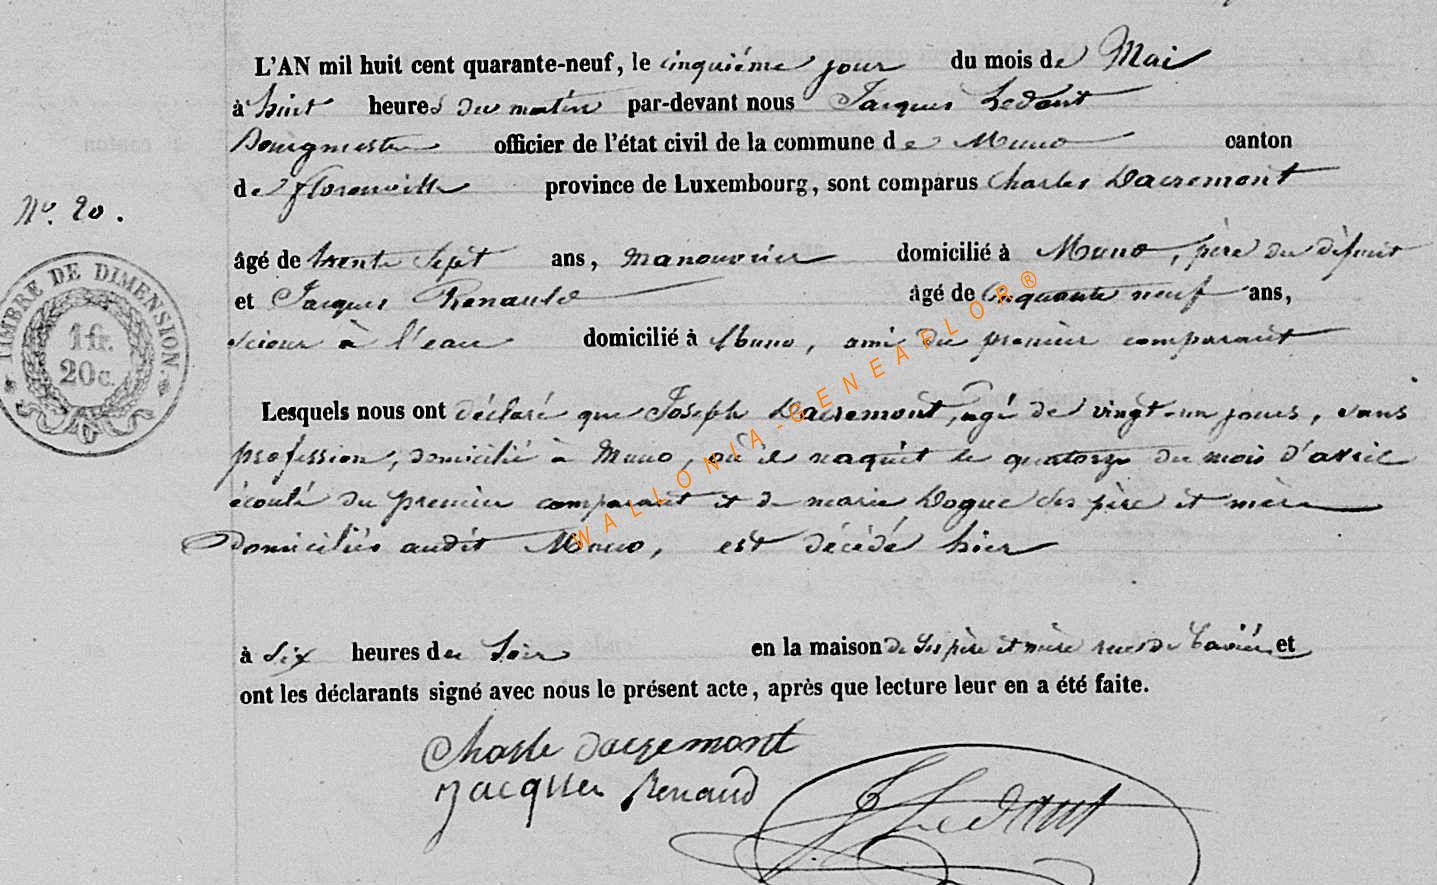 L'AN mil huit cent quarante-neuf, le cinquième jour du mois de Mai
à huit heures du matin par-devant nous Jacques Ledant
Bourgmestre officier de l'état civil de la commune de Muno canton
de Florenville province de Luxembourg, sont comparus Charles Dacremont
No. 20.
âgé de trente sept ans, manouvrier domicilié à Muno, père du défunt
et Jacques Renauld âgé de cinquante neuf ans,
scieur à l'eau domicilié à Muno, ami du premier comparant
TIMBRE DE DIMENSION.
1 fr.
20 c.
Lesquels nous ont déclaré que Joseph Dacremont, agé de vingt-un jours, sans
profession, domicilié à Muno, où il naquit le quatorze du mois d'avril
du premier comparant et de marie Dogue ses père et mère
domiciliés audit Muno, est décédé hier
à six heures du soir en la maison de ses père et mère et
ont les déclarants signé avec nous le présent acte, après que lecture leur en a été faite.
Charle dacremont
jacques Renaud
J Ledant
WALLONIA-GENEAFLOR®